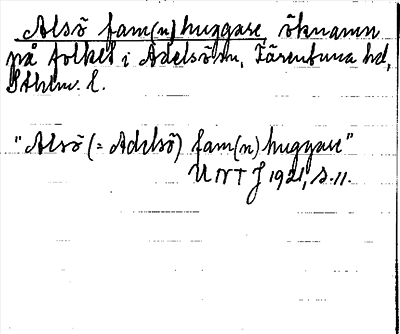 Alsö fam(n)huggare, öknamn
på folket i Adelsö sn, Färentuna hd,
Sthlm. l.
"Alsö (= Adelsö) fam(n)huggare"
UNT J 1921, s. 11.